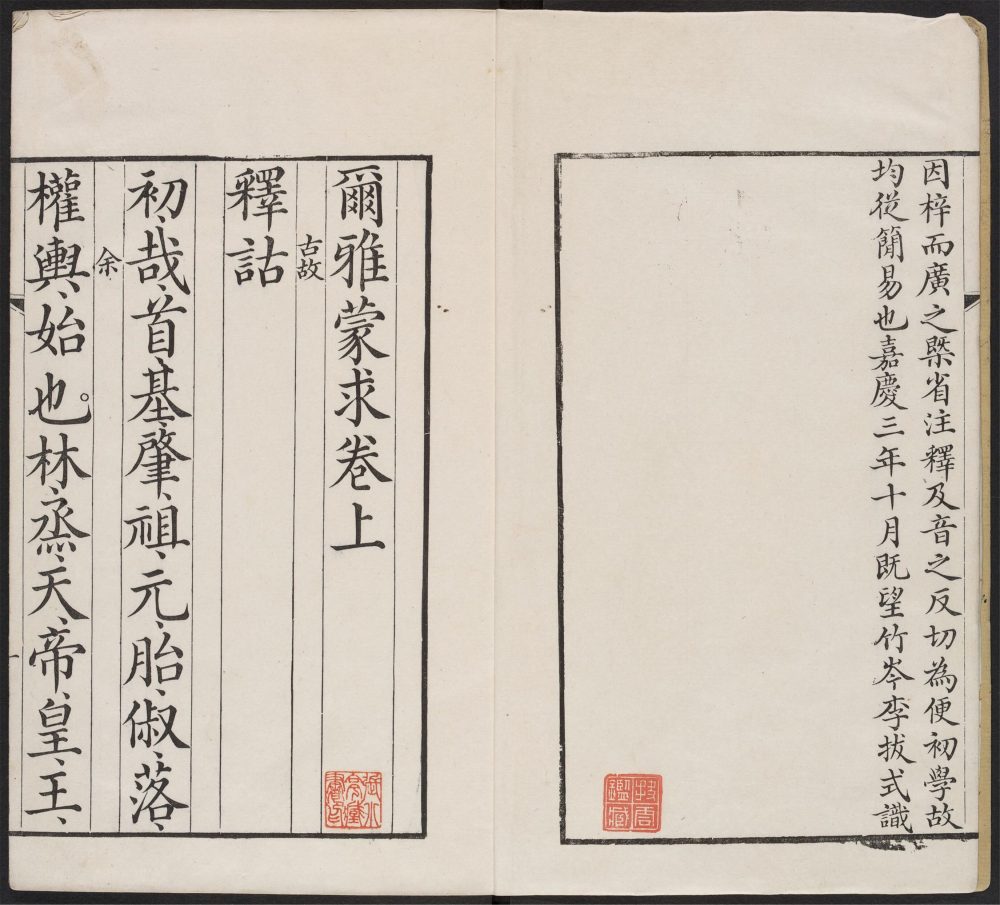 因梓而廣之槩省注釋及音之反切為便初學故
均從簡易也嘉慶三年十月既望竹岑李拔式識
鑑藏
爾雅蒙求卷上
古故
釋詁
初、哉、首、基、肇、祖、元、胎、俶、落、
余
權輿、始也。林、烝、天、帝、皇、王、
一